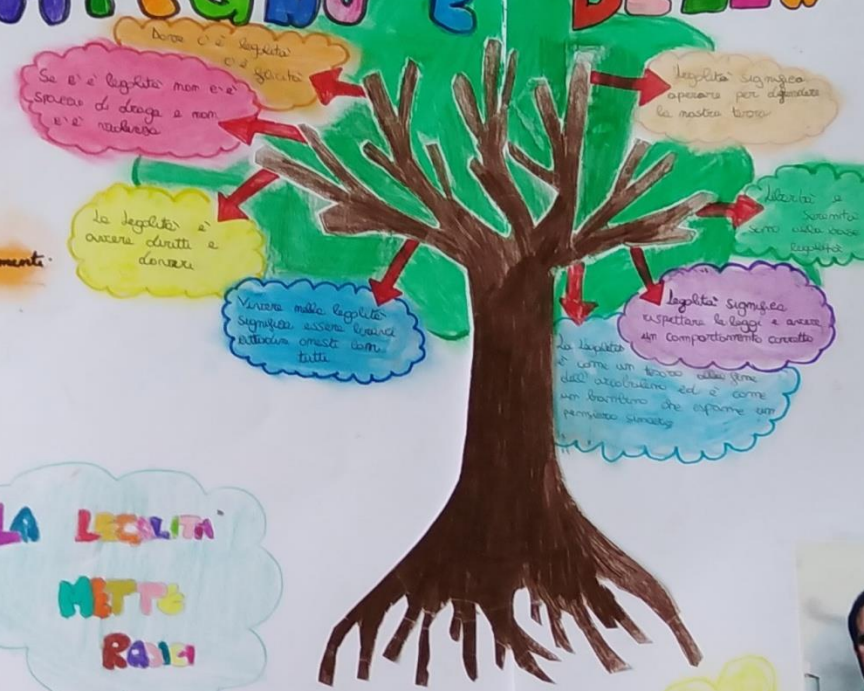 E BELLA
Dove c'è legalità
c'è felicità
Se c'è legalità non c'è
spaccio di droga e non
c'è violenza
La legalità è
avere diritti e
doveri
Vivere nella legalità
significa essere bravi
cittadini onesti con
tutti
Legalità significa
operare per difendere
la nostra terra
Libertà e
serenità
sono alla base
legalità
Legalità significa
rispettare le leggi e avere
un comportamento corretto
La legalità
è come un tesoro alla fine
dell'arcobaleno ed è come
un bambino che esprime un
pensiero sincero
LA LEGALITÀ
METTE
RADICI